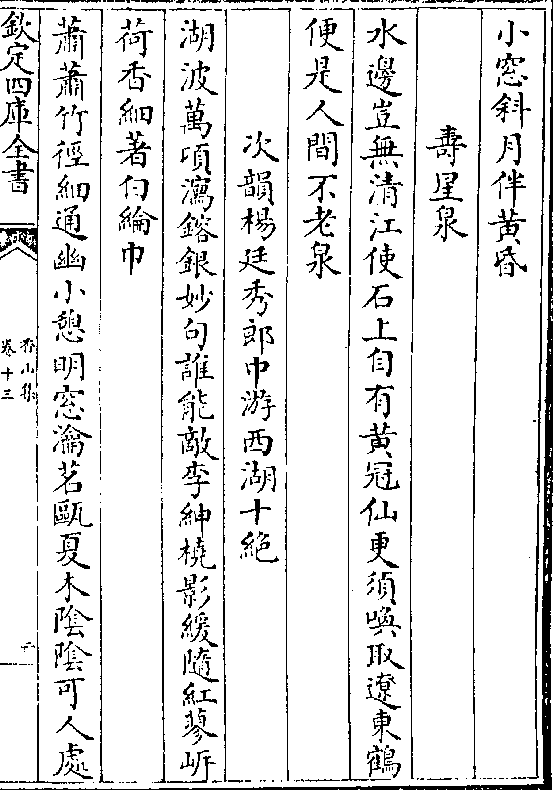 小窓斜月伴黄昏
壽星泉
水邊豈無清江使石上自有黄冠仙更須喚取遼東鶴
便是人間不老泉
次韻楊廷秀郎中游西湖十絶
湖波萬頃瀉鎔銀妙句誰能敵李紳橈影緩隨紅蓼岍
荷香細著白綸巾
蕭蕭竹徑細通幽小憩明窓瀹茗甌夏木陰陰可人處
欽定四庫全書
香山集
卷十三